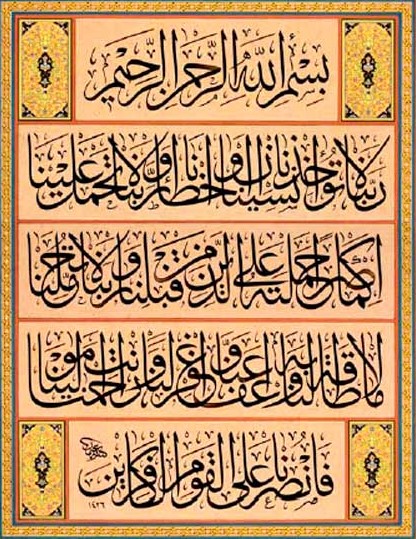 بسم الله الرحمن الرحيم
ربنا لا تؤاخذنا ان نسينا او اخطأنا ربنا ولا تحمل علينا
اصرا كما حملته على الذين من قبلنا ربنا ولا تحملنا
ما لا طاقة لنا به واعف عنا واغفر لنا وارحمنا انت مولينا
فانصرنا على القوم الكافرين
١٤٢٦